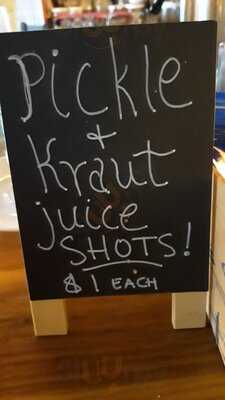 Pickle
+
Kraut
juice
SHOTS!
$1 EACH